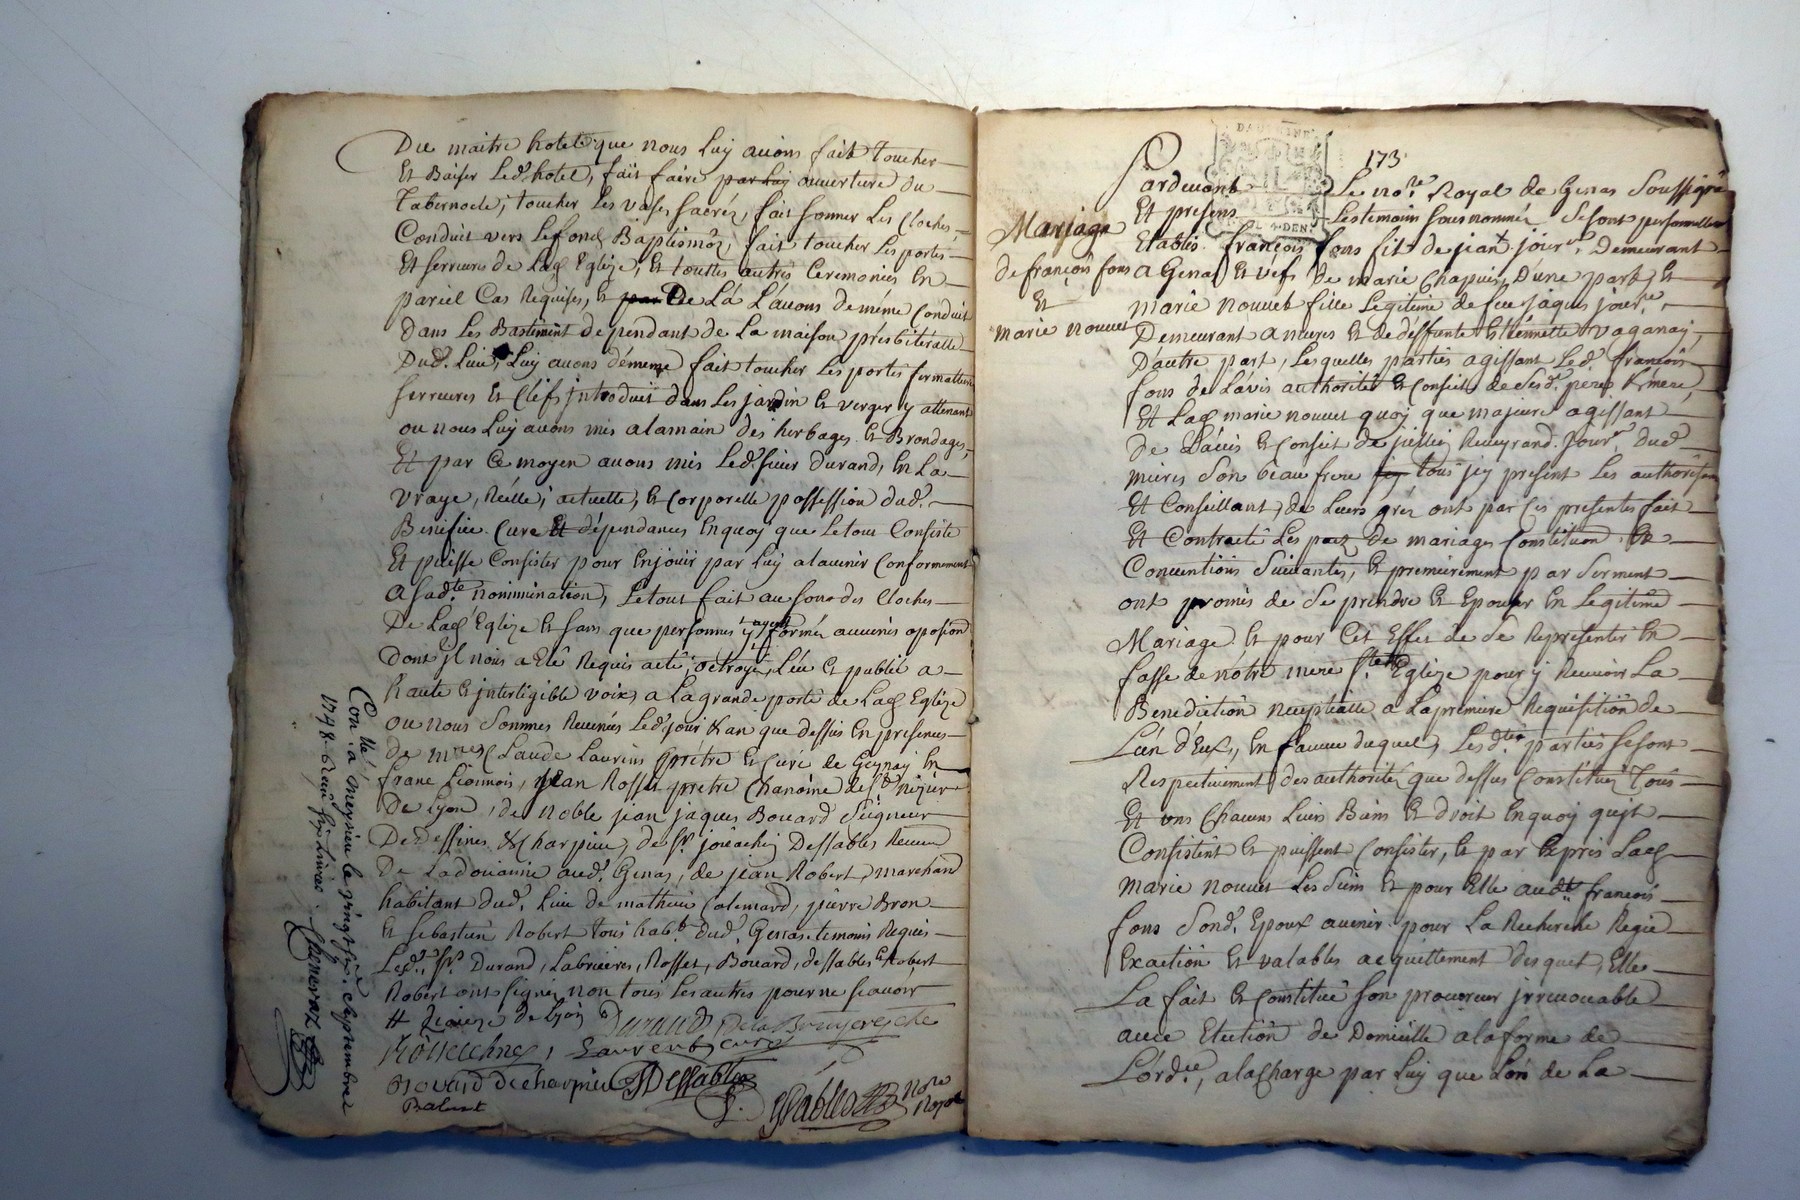 Du maitre hotel que nous Luy avions fait toucher
Et Baiser Led. hotel, fait faire par Luy ouverture du
Tabernacle, toucher Les vases sacréz, fait sonner Les Cloches,
Conduit vers Lefond Baptismôs, fait toucher Les portes
Et serrures de Lad Eglize, Et touttes autres Ceremonies En
pariel Cas Requises, Et par De Lá L'avons deméme Conduit
Dans Les Bastiment dependant de La maison présbitéralle
Dud. Lieu, Luy avons déméme fait toucher Les portes fermatture
serrures Et Clefs introduit dans Les jardin Et verger y attenant
ou nous Luy avons mis alamain des herbages Et Brondages,
Et par Ce moyen avons mis Led. sieur Durand, En La
vraye, Réélle, actuelle, Et Corporelle possession dud.
Benifice Cure Et dépendances Enquoy que Letout Consiste
Et puisse Consister pour Enjouir par Luy alavenir Conformement
Asad.te nomimination, Letout fait au son des Cloches
De Lad Eglize Et sans que personnes y ayent formés aucunes oposion
Dont jl nous a Eté Requis acte octroyé, Léu Et publié a
haute Et jnterligible voix, a Lagrande porte de Lad Eglize
ou nous Sommes Revenûs Led. jour & an que dessus En presences
de m.res Claude Laurens prétre Et Curé de Genay En
franc Lionnois, jean Rosset pretre Chanoine de St. nizier
De Lyon, de noble jean jaques Bouard Seigneur
De Dessines & Charpieu, de sr. joéachin Dessables Receveur
De Ladouanne aud. Genas, de jean Robert marchand
habitant dud. Lieu de mathieu Calemard, pierre Bron
Et sebastien Robert tous hab.ts dud. Genas temoins Requis
Led. sr. Durand, Labrieres, Rosset, Bouard, dessables Et Robert
Robert ont signés non tous Les autres pour ne sçavoir
Durand De la Bruyere
Rosset chne, Laurent curé
Bouard de charpieu Dessables
Robert
Gssables No.re Royal
Con.lé a meyzieu le septembre
1748 Reçu six Livres.
173
Pardevant Le no.re Royal de Genas Soussigné
Et presens Lestemoin sousnommés Se sont personnellem
Mariage
Etablis françois fons fils de jean jour.er Demeurant
de françois fons
A Genas Et vefs de marie Chapuis, D'une part, Et
Et
Marie nouvet fille Legitime de feu jaques jour.er
marie nouvet
Demeurant a mieres Et de deffunte Etiennette vaganay,
D'autre part, Lesquelles parties agissant Led. françois
fons de Lavis authorité Et Conseils de Sesd. pere & mere,
Et Lad marie nouvet quoy que majeure agissant
De L'avis Et Conseil de jullien Reveyrand jour.er dud
mieres Son beau frere tous jcy present Les authorisan
Et Conseillant, de Leurs gréz ont par Ces presentes fait
Et Contracté Les paz De mariages Constitution, Et
Conventions Suivantes, Et premierement par Serment
ont promis de Se prendre Et Epouser En Legitime
Mariage Et pour Cet Effet de Se Representer En
fasse de nótre mere S.te Eglize pour y Recevoir La
Benediction nuptialle a Lapremiere Requisition de
Lún d'Eux, En faveur duquel, Lesd.tes parties se sont
Respectivement des authorités que dessus Constitués Tous
Et uns Chacuns Leurs Biens Et droit Enquoy qu'jls
Consistent Et puissent Consister, Et par Exprès Lad
Marie nouvet Les Siens Et pour Elle aud.t françois
fons Sond. Epoux avenir pour La Recherche Regie
Exaction Et valables acquittement desquels, Elle
La fait Et Constitué son procureur jrrevocable
avec Election de Domicille alaforme de
L'ord.ce, alaCharge par Luy que L'on de La